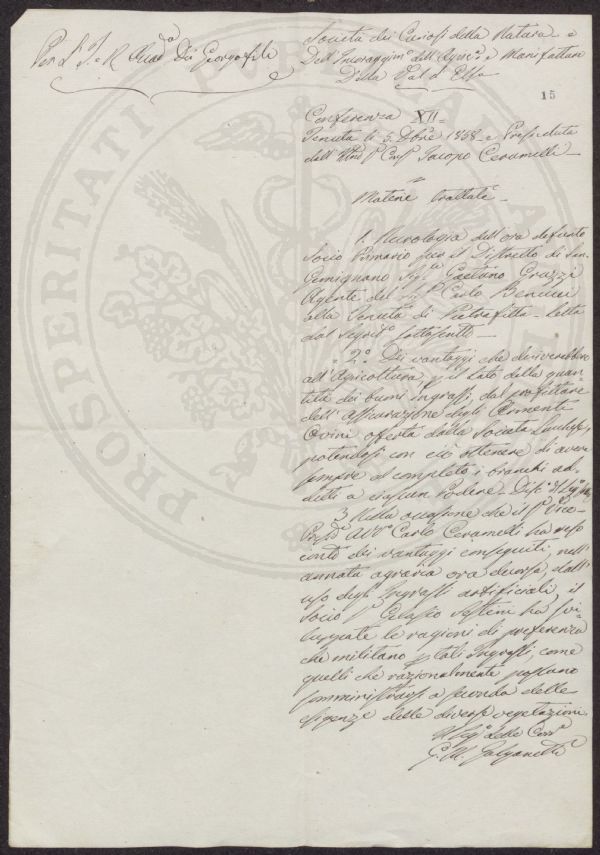 Per L'I. e R. Accad.a Dei Georgofili
Società dei Curiosi della Natura e
Dell'Incoraggim.o dell'Agric.a e Manifatture
Della Val d'Elsa
15
Conferenza XII=
Tenuta li 5 Dbre 1858 e Presieduta
dall' Jacopo Ceramelli
Materie trattate
1. Necrologia dell'ora defunto
Socio Primario per il Distretto di San
Gemignano Sig.re Gaetano Grazzi
Agente del Carlo Benucci
alla Tenuta di Pietrafitta - Letta
dal Segret.o sottoscritto
2.o Dei vantaggi che deriverebbero
all'Agricoltura p il lato della quan
tità dei buoni ingrassi, dal profittare
dell'Assicurazione degli Armenti
Ovini offerta dalla Società
potendosi con ciò ottenere di aver
sempre al completo i branchi ad-
detti a ciascun Podere
3 Nella occasione che il Vice-
Pres.e Avv.o Carlo Ceramelli ha reso
conto dei vantaggi conseguiti, nell'
annata agraria ora decorsa, dall'
uso degli Ingrassi artificiali, il
Socio Gelasio Sesteni ha svi-
luppate le ragioni di preferenza
che militano p tali Ingrassi, come
quelli che razionalmente possano
somministrarsi a seconda delle
esigenze delle diverse vegetazioni
Il Seg.o delle Corr.e
PROSPERITATI PUBLICAE